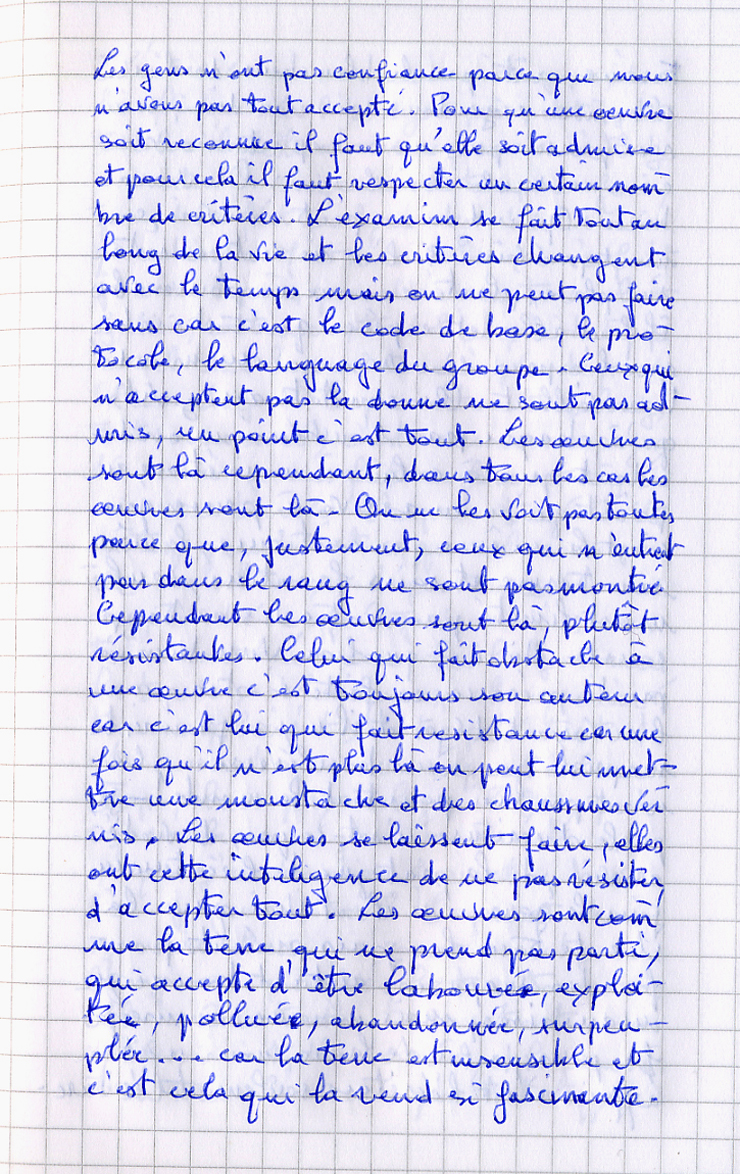 Les gens n'ont pas confiance parce que nous
n'avons pas tout accepté. Pour qu'une oeuvre
soit reconnue il faut qu'elle soit admise
et pour cela il faut respecter un certain nom
bre de critères. L'examin se fait tout au
long de la vie et les critères changent
avec le temps mais on ne peut pas faire
sans car c'est le code de base, le pro-
tocole, le language du groupe. Ceux qui
n'acceptent pas la donne ne sont pas ad-
mis, un point c'est tout. Les œuvres
sont là cependant, dans tous les cas les
œuvres sont là. On ne les voit pas toutes
parce que, justement, ceux qui n'entrent
pas dans le rang ne sont pas montré
Cependant les œuvres sont là, plutôt
résistantes. Celui qui fait obstacle à
une œuvre c'est toujours son auteur
car c'est lui qui fait resistance car une
fois qu'il n'est plus là on peut lui met-
tre une moustache et des chaussures ver
nis. Les œuvres se laissent faire, elles
ont cette inteligence de ne pas résister,
d'accepter tout. Les œuvres sont com
me la terre qui ne prend pas parti,
qui accepte d'être labourée, exploi-
tée, polluée, abandonnée, surpeu-
plée... car la terre est insensible et
c'est cela qui la rend si fascinante.